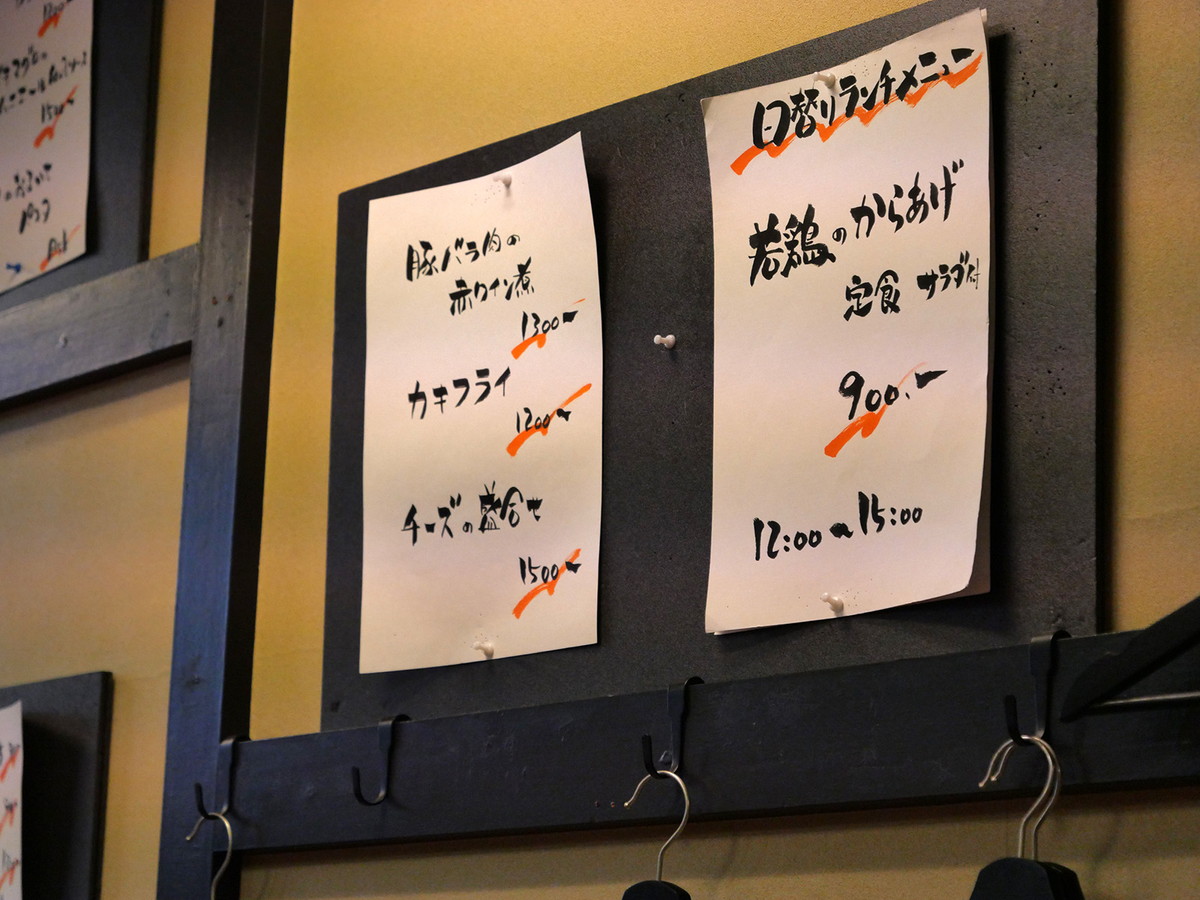 豚バラ肉の
赤ワイン煮
1300-
カキフライ
1200-
チーズの盛合せ
1500-
日替りランチメニュー
若鶏のからあげ
定食 サラダ付
900.-
12:00~15:00